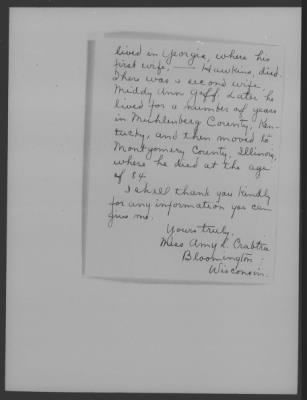 lived in Georgia, where his
first wife, —— Hawkins, died.
There was a second wife,
Middy Ann Goff. Later he
lived for a number of years
in Muhlenberg County, Ken-
tucky, and then moved to
Montgomery County, Illinois,
where he died at the age
of 84.
I shall thank you kindly
for any information you can
give me.
Yours truly,
Miss Amy L. Crabtre
Bloomington
Wisconsin.